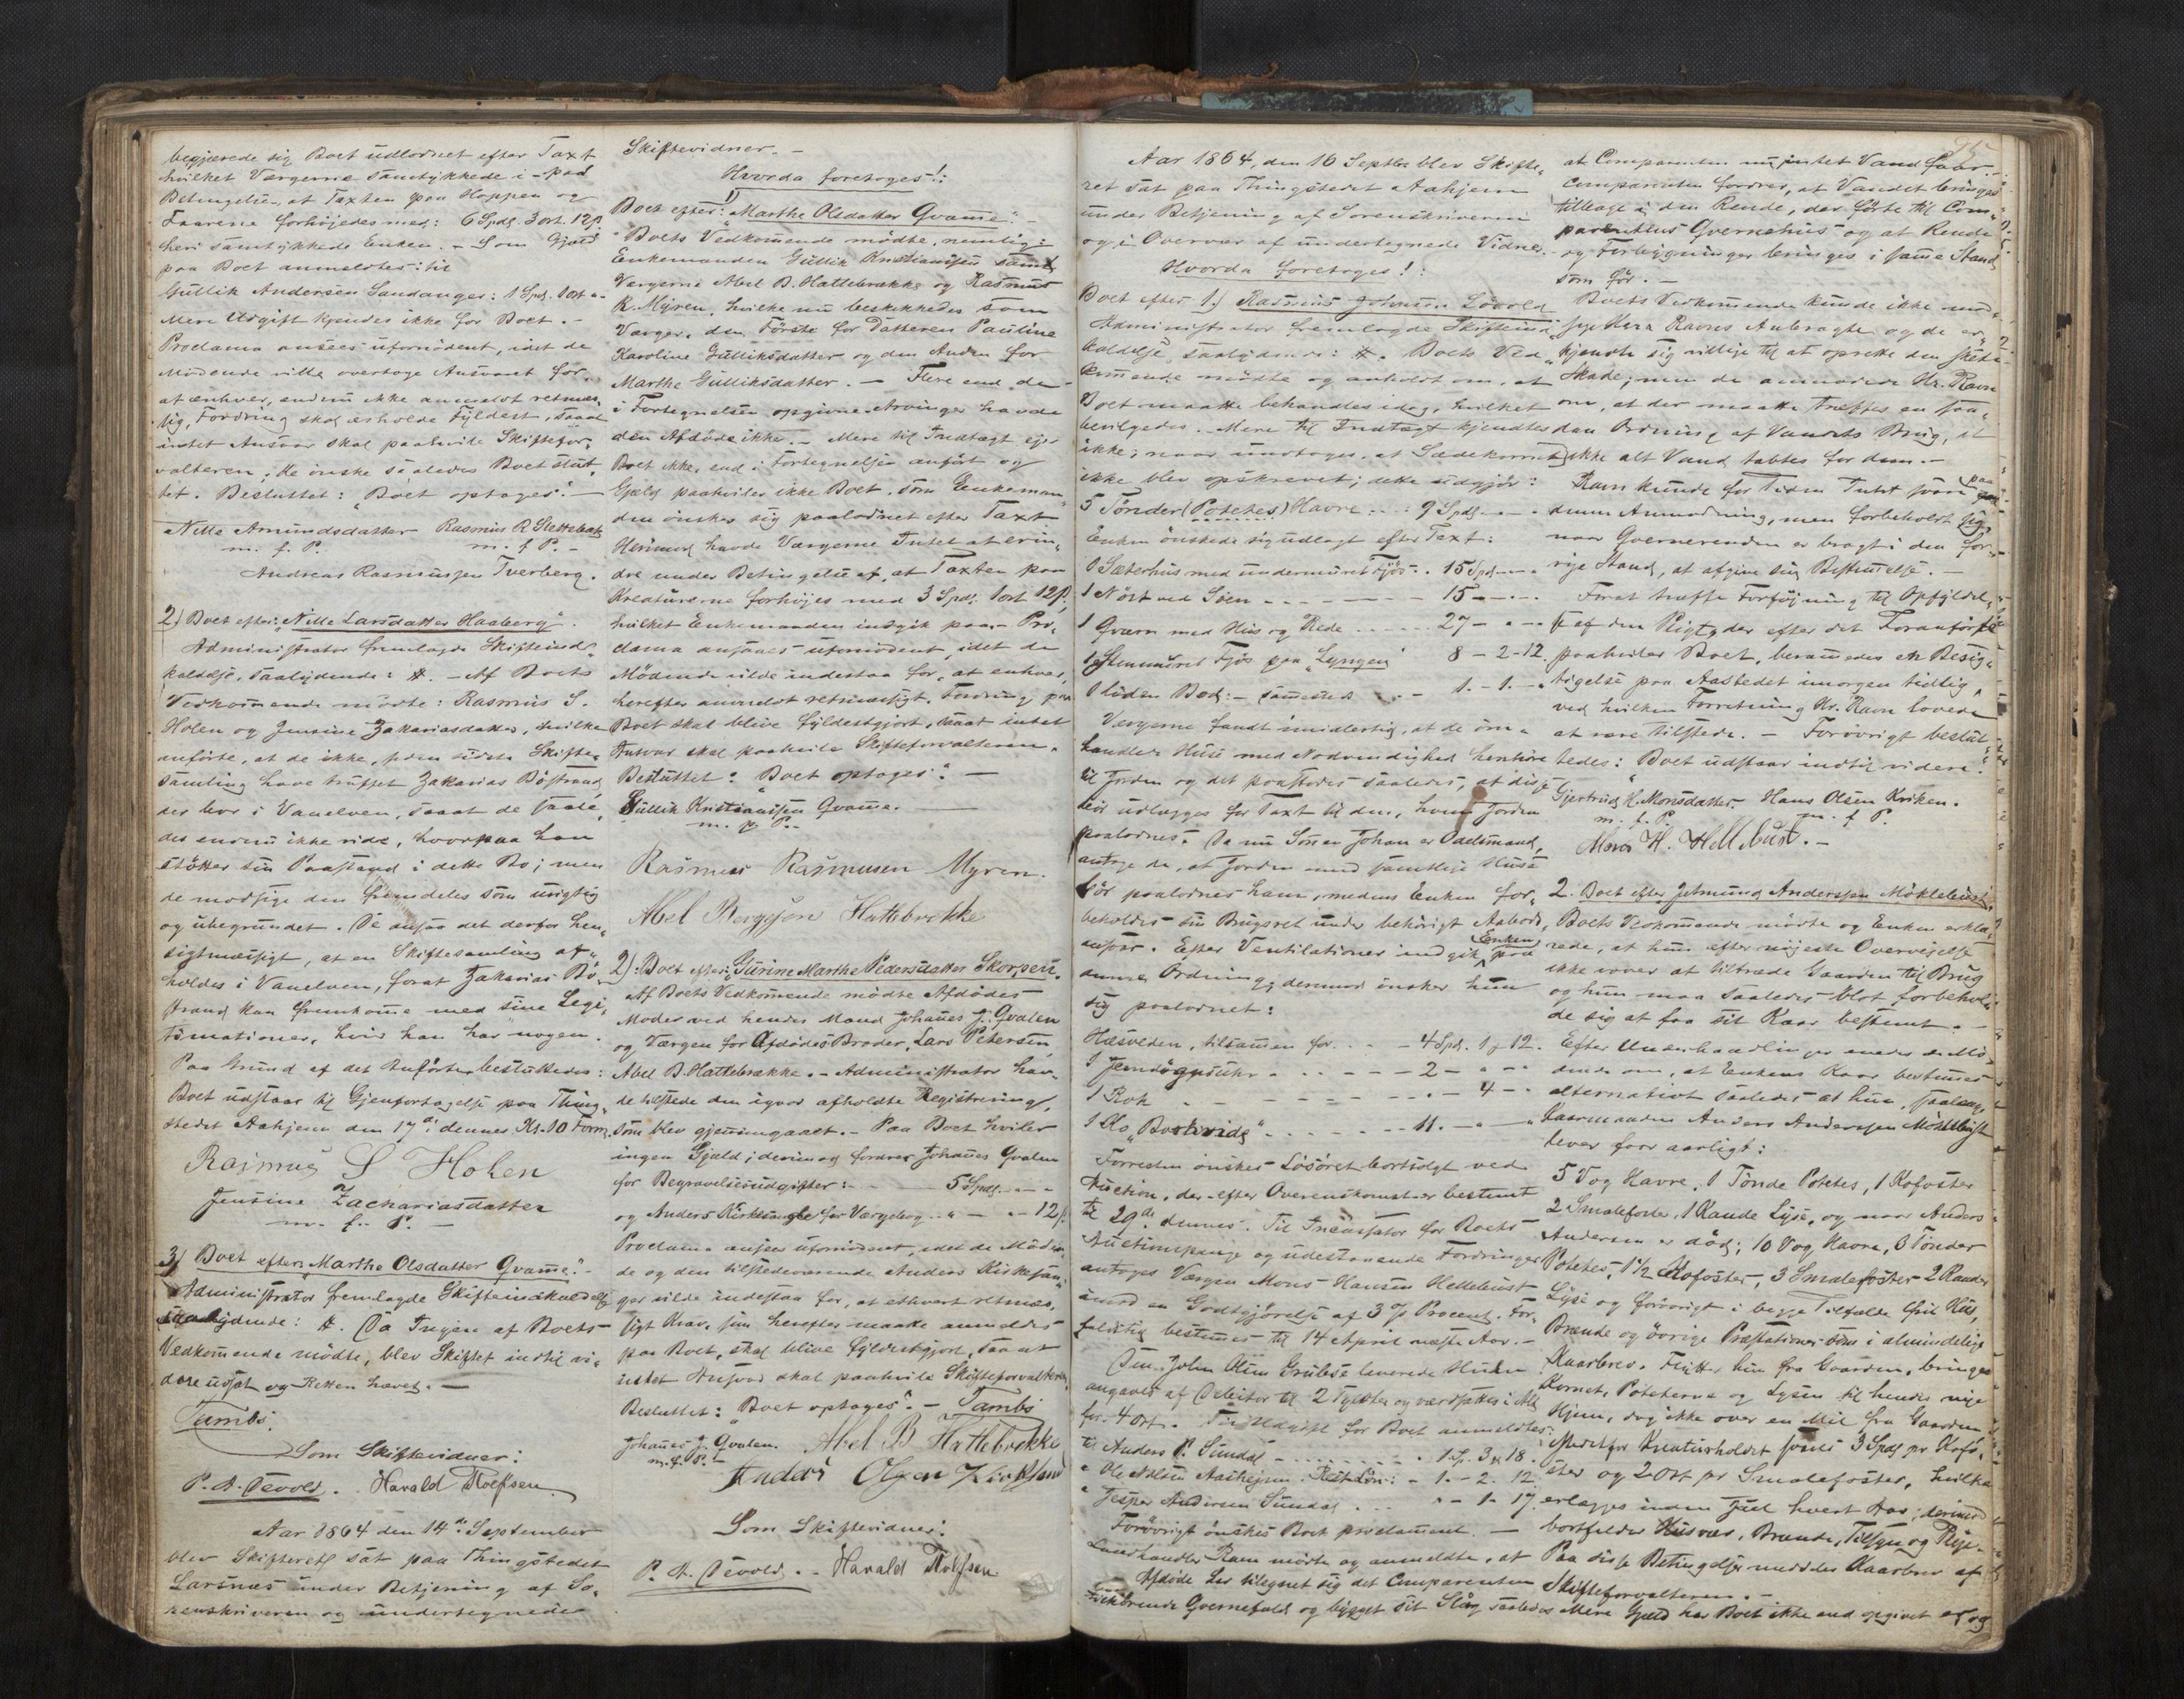 begjærede sig Boet udlodnet efter Taxt
hvilket Værgerne samtykkede i - paa
Betingelse, at Taxten paa Hoppen og
Faarene forhöjedes med: 6 Spd. 3 ort. 12 β
heri samtykkede Enken. - Som Gjæld
paa Boet anmeldtes: til
Gullik Andersen Sandanger: 1 Spd. 1 ort -
Mere Udgift kjendes ikke for Boet. -
Proclama ansees ufornödent, idet de
Mödende ville overtage Ansvaret for,
at enhver, endnu ikke anmeldt retmæs,
sig, Fordring skal erholde Fyldest, saaat
intet Ansvar skal paahvile Skiftefor,
valteren; de önske saaledes Boet slut,
tet. Besluttet: "Boet optages". -
Nille Amundsdatter Rasmus R. Slettebak
m. f. P. m. f. P. -
Andreas Rasmussen Tverberg.
2) Boet efter: "Nille Larsdatter Haaberg".
Administrator fremlagde Skifteind,
kaldelse, saalydende: #. - Af Boets
Vedkommende mödte: Rasmus S.
Holen og Jensine Zakariasdatter, hvilke
anförte, at de ikke, siden sidste Skifte,
samling have truffet Zakarias Böstrand
der bor i Vanelven, saaat de saale,
des endnu ikke vide, hvorpaa han
stötter sin Paastand i dette Bo; men
de modsige den fremdeles som urigtig
og ubegrundet. De ansaa det derfor hen,
sigtmæssigt, at en Skiftesamling af,
holdes i Vanelven, forat Zakarias Bö,
strand kan fremkomme med sine Legi,
timationer, hvis han har nogen.
Paa Grund af det Anförte besluttedes:
Boet udstaar til Gjenfortagelse paa Thing,
stedet Aahjem den 17de dennes Kl. 10 Form.
Rasmus S Holen
Jensine Zachariasdatter
m. f. P. -
3) Boet efter: "Marthe Olsdatter Qvamme". -
Administrator fremlagde Skifteindkaldelse
saalydende: #. Da Ingen af Boets
Vedkommende mödte, blev Skiftet indtil vi,
dere udsat og Retten hævet. -
Tambs.
Som Skiftevidner:
P. A. Devold. Harald Rolfsen
Aar 1864 den 14de September
blev Skifteret sat paa Thingstedet
Larsnæs under Betjening af So,
renskriveren og undertegnede
Skiftevidner. -
Hvorda foretoges!:
1) Boet efter: "Marthe Olsdatter Qvamme". -
Boets Vedkommende mödte, nemlig:
Enkemanden Gullik Kristiansen samt
Vergerne Abel B. Hattebrække og Rasmus
R. Myren, hvilke nu beskikkedes som
Værger, den Förste for Datteren Pauline
Karoline Gulliksdatter og den Anden for
Marthe Gulliksdatter. - Flere end de
i Fortegnelsen opgivne Arvinger havde
den Afdöde ikke. - Mere til Indtægt ejer
Boet ikke, end i Fortegnelsen anfört og
Gjæld paahviler ikke Boet, som Enkeman,
den önsker sig paalodnet efter Taxt
Herimod havde Værgerne Intet at erin,
dre under Betingelse af, at Taxten paa
Kreaturerne forhöjes med 3 Spd. 1 ort 12 β.
hvilket Enkemanden indgik paa - Pro,
clama ansaaes ufornödent, idet de
Mödende vilde indestaa for, at enhver,
herefter anmeldt retmæssigt Fordring paa
Boet skal blive fyldestgjort, saaat intet
Ansvar skal paahvile Skifteforvalteren.
Besluttet: "Boet optages". -
Gullik Kristiansen Qvamme.
m. f. P. -
Rasmus Rasmusen Myren.
Abel Bergesøn Hattebrekke
2) Boet efter: "Gurine Marthe Pedersdatter Skorpen".
Af Boets Vedkommende mödte Afdödes
Moder ved hendes Mand Johannes J. Qvalen
og Værgen for Afdödes Broder, Lars Petersen,
Abel B. Hattebrække. - Administrator hav,
de tilstede den igaar afholdte Registrering,
som blev gjennemgaaet. - Paa Boet hviler
ingen Gjæld; derimod fordrer Johannes Qvalen
for Begravelsesudgifter: - - 5 Spd. - -
og Anders Kirksæther for Værgebog .. " - " - 12 β.
Proclama ansees ufornödent, idet de Möden,
de og den tilstedeværende Anders Kirkesæt,
ger vilde indestaa for, at ethvert retmæs,
sigt Krav, som herefter maatte anmeldes
paa Boet, skal blive fyldestgjort, saaat
intet Ansvar skal paahvile Skifteforvalteren.
Besluttet: "Boet optages". - Tambs
Johannes J. Qvalen. Abel B Hattebrekke
m. f. P. -
Anders Olsen
Som Skiftevidner:
P. A. Devold. - Harald Rolfsen
Aar 1864, den 16 Septbr blev Skifte,
ret sat paa Thingstedet Aahjem
under Betjening af Sorenskriveren
og i Overvær af undertegnede Vidner. -
Hvorda foretoges!:
Boet efter 1.) Rasmus Johnsen Lövold
Administrator fremlagde Skifteind,
kaldelse, saalydende: #. Boets Ved,
kommende mödte og anholdt om, at
Boet maatte behandles idag, hvilket
bevilgedes. Mere til Indtægt kjendtes
ikke; naar undtages, at Sædekornet
ikke blev opskrevet; dette udgjör:
5 Tönder (Potetes) Havre ... 9 Spd. - -
Enken önskede sig udlagt efter Taxt:
1 Sæterhus med undermuret Fjös .. 15 Spd. - -
1 Nöst ved Söen - - - - 15 - - -
1 Qværn med Hus og Rede .... 27 - " - "
1 Stenmuret Fjös paa "Lyngen" 8 - 2 - 12.
1 liden Bod: - sammesteds .. - 1. - 1. - "
Værgerne fandt imidlertid, at de om,
handlede Huse med Nodvendighed henhöre
til Jorden og det paastodes saaledes, at disse
bör udlægges for Taxt til den, hvem Jorden
paalodnes. Da nu Sönen Johan er Odelsmand,
antoge de, at Jorden med samtlige Huse
bör paalodnes ham, medens Enken for,
beholdes sin Brugsret under behörigt Aabods,
ansvar. Efter Ventilationer indgik Enken paa
denne Ordning; derimod önsker hun
sig paalodnet:
Hæsveden, tilsammen for .. - 4 Spd. 1 - 12.
1 Jerndögnsuhr - - - - 2 - " - "
1 Rok - - - - - " - 4 - "
1 Ko "Bostrid" - - - 11. - " - "
Forresten önskes Lösöret bortsolgt ved
Auction, der efter Overenskomst er bestemt
til 29de dennes. Til Incassator for Boets
Auctionspenge og udestaaende Fordringer
antoges Værgen Mons Hansen Hellebust
imod en Godtgjörelse af 3 % Procent. For,
faldstid bestemmes til 14 April næste Aar. -
Den John Olsen Grubse leverede Huder
angaves af Debitor til 2 Tylvter og værdsattes i Alt
for 4 Ort. Til Udgift for Boet anmeldtes:
til Anders P. Sundal - - - - 1 Sp. 3 - 18.
" Ole Nilsen Aahejem. Rest Lön: - 1. - 2. 12.
" Jesper Andersen Sundal ... " - 1 - 17.
Forövrigt önskes Boet proclameret. -
Landhandler Ravn mödte og anmeldte, at
Afdöde har tilegnet sig det Comparenten
tilhörende Qvernefald og bygget sit Slåg saaledes
at Comparenten nu intet Vand faar. -
Comparenten fordrer, at Vandet bringes
tilbage i den Rende, der förte til Com,
parentens Qvernehus og at Rende
og Forbygninger bringes i samme Stand
som för. -
Boets Vedkommende kunde ikke mod,
sige Herr Ravns Anbragte og de er,
kjendte sig villige til at oprette den skete
Skade; men de anmodede Hr. Ravn
om, at der maatte træffes en saa,
dan Ordning af Vandets Brug, at
ikke alt Vand tabtes for dem. -
Ravn kunde for Tiden Intet svare paa
denne Anmodning, men forbeholdt sig,
naar Qvernerenden er bragt i den for,
rige Stand, at afgive sin Bestemmelse. -
Forat træffe Forföjning til Opfyldel,
se af den Pligt, der efter det Foranförte
paahviler Boet, berammedes en Besig,
tigelse paa Aastedet imorgen tidlig,
ved hvilken Forretning Hr. Ravn lovede
at være tilstede. - Forövrigt beslut,
tedes: "Boet udstaar indtil videre".
Gjertrud H. Monsdatter. Hans Olsen Kriken.
m. f. P. m. f. P.
Mons H. Hellebust. -
2. Boet efter Jetmund Anderssen Möklebust.
Boets Vedkommende mödte og Enken erklæ,
rede, at hun efter nöjeste Overvejelse
ikke vover at tiltræde Gaarden til Brug
og hun maa saaledes blot forbehol,
de sig at faa sit Kaar bestemt. -
Efter Underhandlinger enedes de Mö,
dende om, at Enkens Kaar bestemmes
alternativt saaledes at hun, saalænge
Kaarmanden Anders Anderssen Möklebust
lever faar aarligt:
5 Vog Havre, 1 Tönde Potetes, 1 Kofoster
2 Smalefoster, 1 Kande Lyse, og naar Anders
Andersen er död; 10 Vog Havre, 3 Tönder
Potetes, 1 1/2 Kofoster, 3 Smalefoster 2 Kander
Lyse og forövrigt i begge Tilfælde frit Hus,
Brænde og övrige Præstationer som i almindelige
Kaarbrev. Flytter hun fra Gaarden, bringes
Kornet, Poteterne og Lysen til hendes nye
Hjem, dog ikke over en Mil fra Gaarden
Istedetfor Kreaturholdet svares 3 Spd pr Kofo,
ster og 2 Ort pr Smalefoster, hvilke
erlægges inden Jul hvert Aar; derimod
bortfalder Husvær, Brænde, Tilsyn og Pleje.
Paa disse Betingelser meddeles Kaarbrev af
Skifteforvalteren. -
Mere Gjæld har Boet ikke end opgivet er og